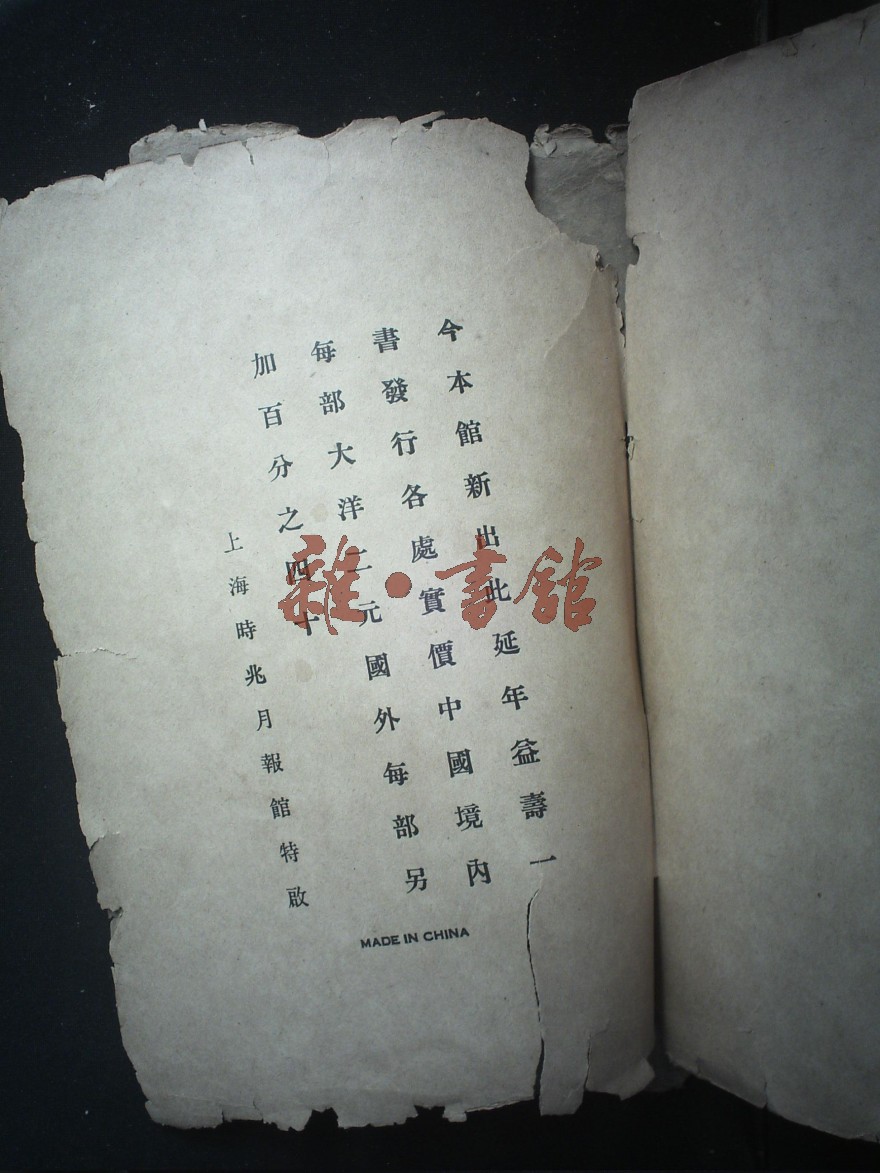 今本館新出此延年益壽一
書發行各處實價中國境內
每部大洋二元國外每部另
加百分之四十
上海時兆月報館特啟
MADE IN CHINA
雜·書館